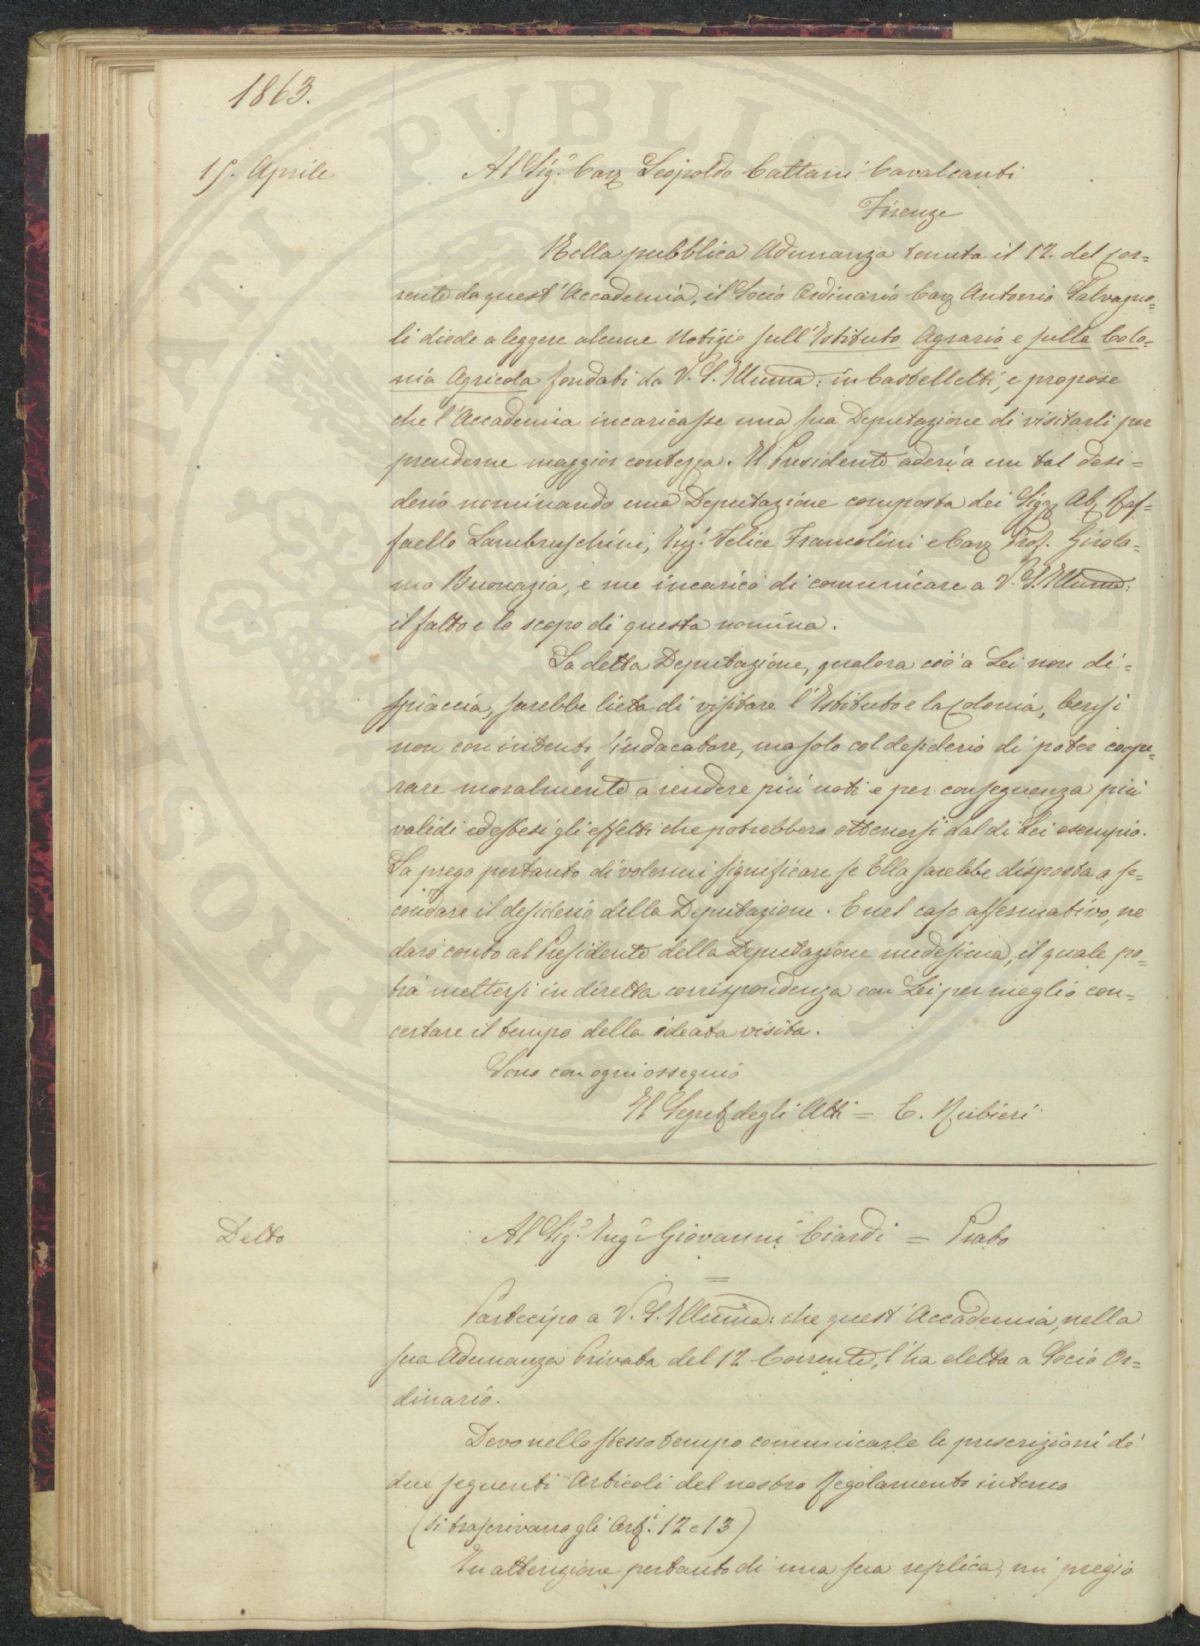 1863.
15. Aprile
Al Sig.r Cav Leopoldo Cattani Cavalcanti
Firenze
Nella pubblica Adunanza tenuta il 12 del cor=
rente da quest'Accademia, il Socio Ordinario Cav Antonio Salvagno=
li diede a leggere alcune Notizie sull'Istituto Agrario e sulla Colo=
nia Agricola fondati da V. S. Illuma: in Castelletti, e propose
che l'Accademia incaricasse una sua Deputazione di visitarli per
prenderne maggior contezza. Il Presidente aderì a un tal desi=
derio nominando una Deputazione composta dei Sigg Ab Raf=
faello Lambruschini, Ing.r Felice Francolini e Cav Prof. Girola=
mo Buonazia, e me incaricò di comunicare a V. S. Illuma:
il fatto e lo scopo di questa nomina.
La detta Deputazione, qualora ciò a Lei non di=
spiaccia, sarebbe lieta di visitare l'Istituto e la Colonia, bensì
non con intento sindacatore, ma solo col desiderio di poter coope=
rare moralmente a rendere più noti e per conseguenza più
validi ed estesi gli effetti che potrebbero ottenersi dal di Lei esempio.
La prego pertanto di volermi significare se Ella sarebbe disposta a se=
condare il desiderio della Deputazione. E nel caso affermativo, ne
darò conto al Presidente della Deputazione medesima, il quale po=
trà mettersi in diretta corrispondenza con Lei per meglio con=
certare il tempo della ideata visita.
Sono con ogni ossequio
Il Segret degli Atti = E. Rubieri
Detto
Al Sig.r Ing.r Giovanni Ciardi = Prato
Partecipo a V. S. Illuma: che quest'Accademia, nella
sua Adunanza Privata del 12 Corrente, l'ha eletta a Socio Or=
dinario.
Devo nello stesso tempo comunicarle le prescrizioni de'
due seguenti Articoli del nostro Regolamento interno
(Si trascrivano gli Art.i 12 e 13)
In attenzione pertanto di una sua replica, mi pregio
PROSPERITATI PUBLICAE